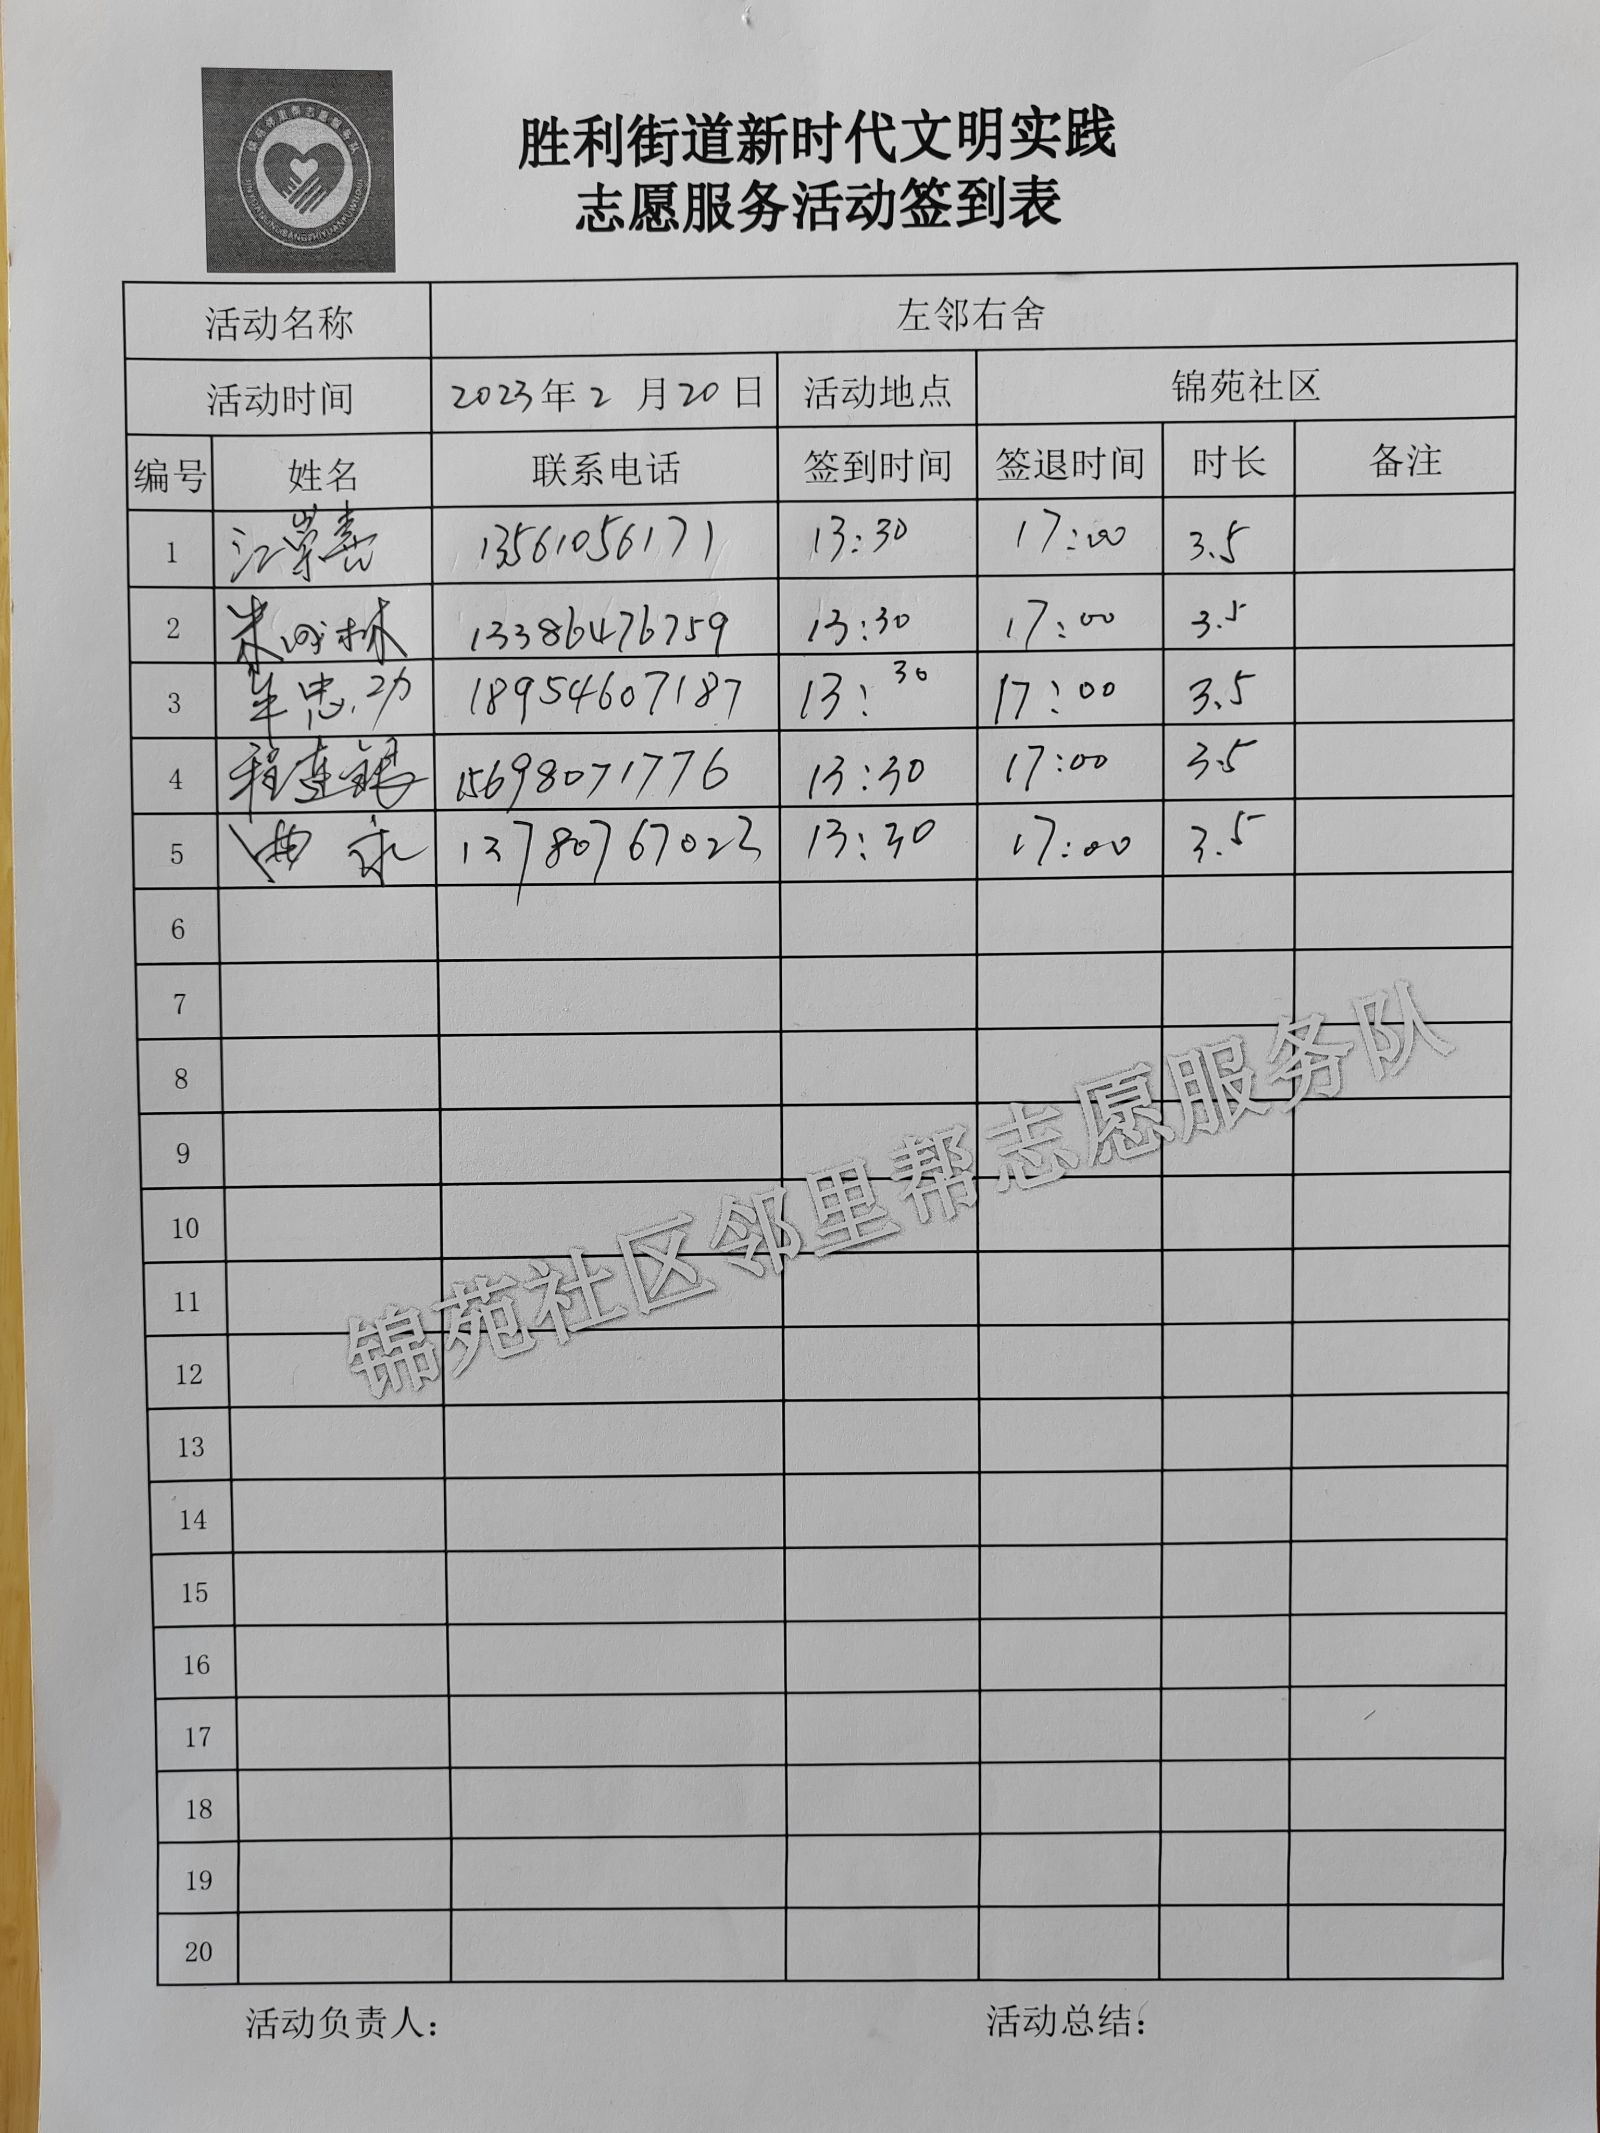 锦苑邻里帮志愿服务队
胜利街道新时代文明实践
志愿服务活动签到表
活动名称 左邻右舍
活动时间 2023年2月20日 活动地点 锦苑社区
编号 姓名 联系电话 签到时间 签退时间 时长 备注
1 江崇喜 13561056171 13:30 17:00 3.5
2 13386476759 13:30 17:00 3.5
3 牟忠功 18954607187 13:30 17:00 3.5
4 程连银 15698071776 13:30 17:00 3.5
5 曲永 13780767023 13:30 17:00 3.5
6
7
8
9
10
11
12
13
14
15
16
17
18
19
20
锦苑社区邻里帮志愿服务队
活动负责人： 活动总结：